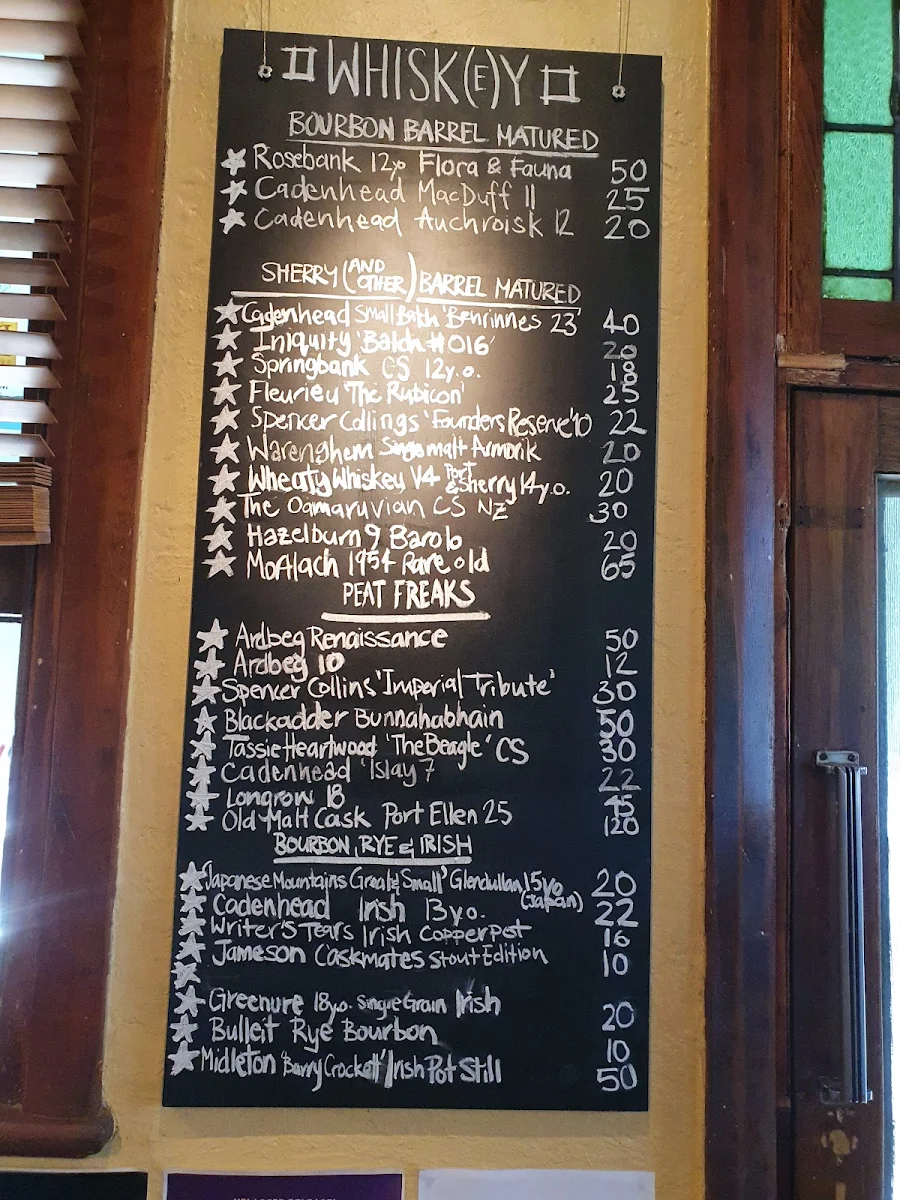 WHISK(E)Y
BOURBON BARREL MATURED
Rosebank 12yo Flora & Fauna 50
Cadenhead MacDuff 11 25
Cadenhead Auchroisk 12 20
SHERRY (AND OTHER) BARREL MATURED
Cadenhead Small Batch 'Benrinnes 23' 40
Iniquity 'Batch #016' 20
Springbank CS 12y.o. 18
Fleurieu 'The Rubicon' 25
Spencer Collings 'Founders Reserve' 10 22
Warenghem Single malt Armorik 20
Wheaty Whiskey V4 Port & Sherry 14y.o. 20
The Oamaruvian CS NZ 30
Hazelburn 9 Barolo 20
Mortlach 1954 Rare old 65
PEAT FREAKS
Ardbeg Renaissance 50
Ardbeg 10 12
Spencer Collins 'Imperial Tribute' 30
Blackadder Bunnahabhain 50
Tassie Heartwood 'The Beagle' CS 30
Cadenhead 'Islay 7 22
Longrow 18 45
Old Malt Cask Port Ellen 25 120
BOURBON, RYE & IRISH
Japanese Mountains Great & Small' Glendullan 15yo (Japan) 20
Cadenhead Irish 13yo. 22
Writer's Tears Irish Copper Pot 16
Jameson Caskmates Stout Edition 10
Greenore 18y.o. Single Grain Irish 20
Bulleit Rye Bourbon 10
Midleton 'Barry Crockett' Irish Pot Still 50